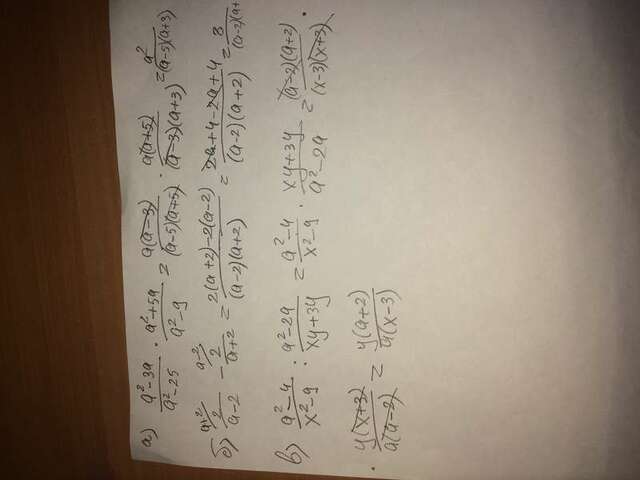 а) (a²-3a)/(a²-25) · (a²+5a)/(a²-9) = (a(a-3))/((a-5)(a+5)) · (a(a+5))/((a-3)(a+3)) = a²/((a-5)(a+3))
б) ᵃ⁺²⁄ 2/(a-2) - ᵃ⁻²⁄ 2/(a+2) = (2(a+2)-2(a-2))/((a-2)(a+2)) = (2a+4-2a+4)/((a-2)(a+2)) = 8/((a-2)(a+
в) (a²-4)/(x²-9) : (a²-2a)/(xy+3y) = (a²-4)/(x²-9) · (xy+3y)/(a²-2a) = ((a-2)(a+2))/((x-3)(x+3)) ·
· (y(x+3))/(a(a-2)) = (y(a+2))/(a(x-3))